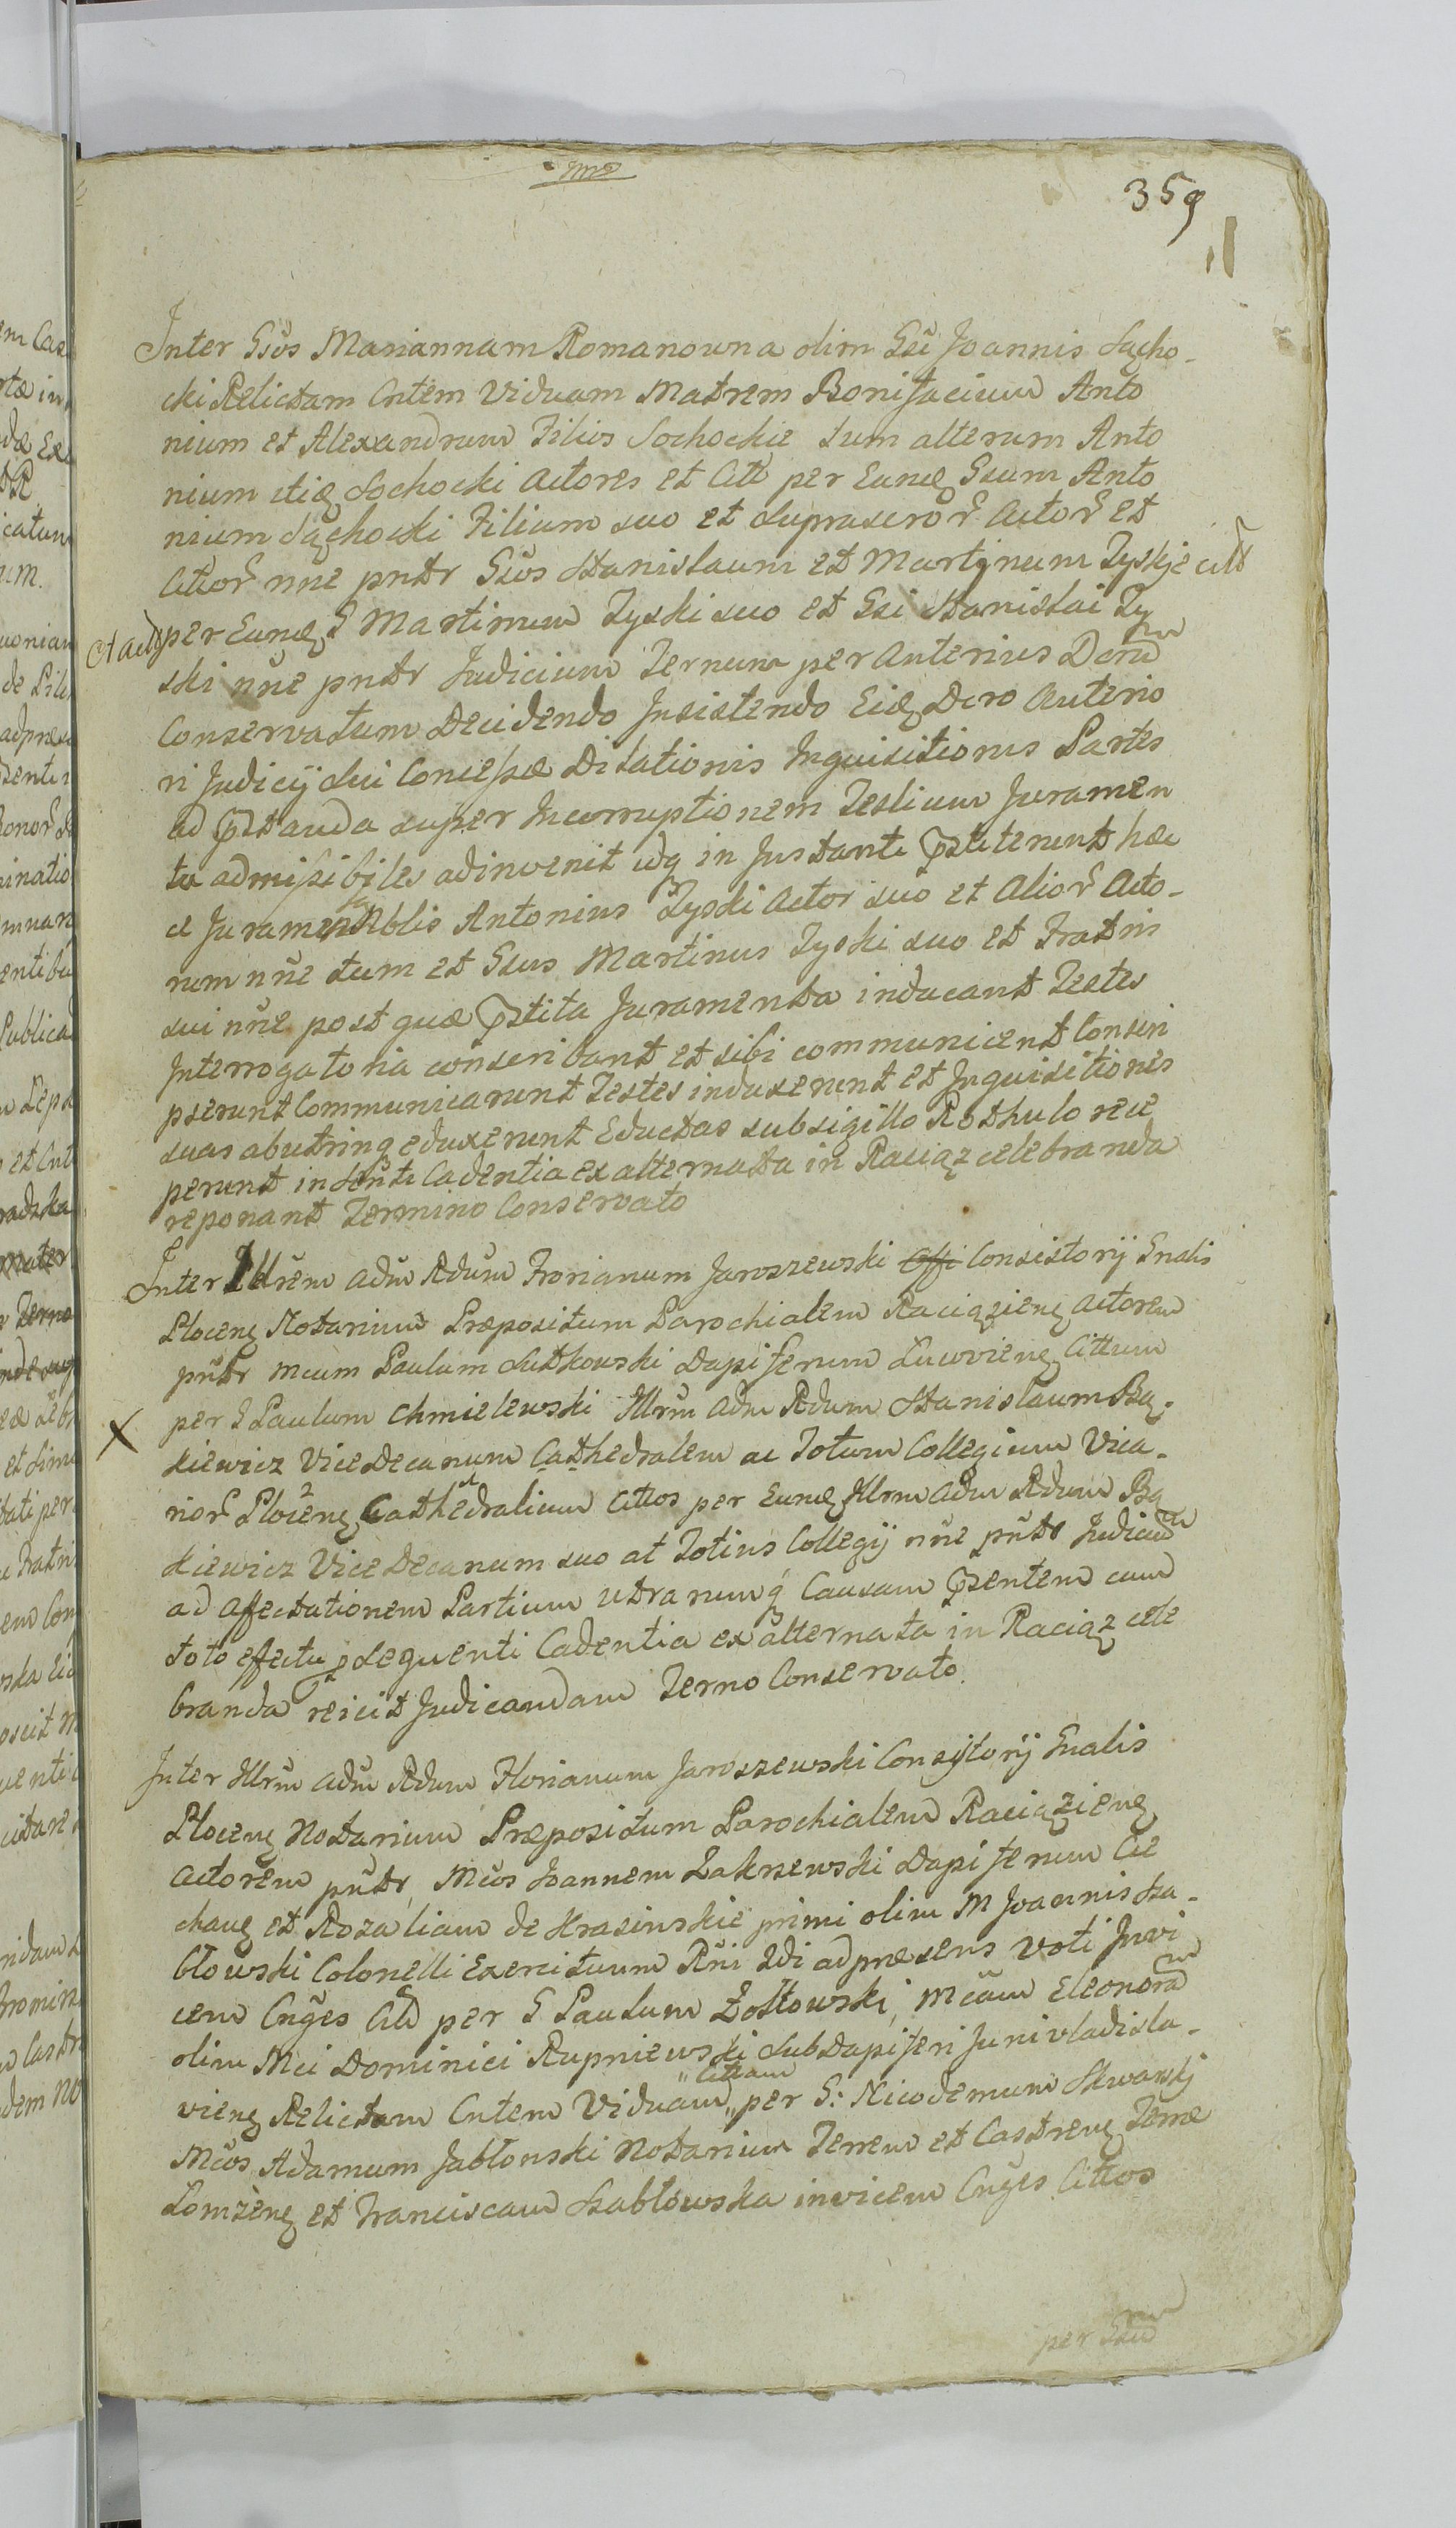 359
Inter Gsos Mariannam Romanowna olim Gsi Joannis Socho-
cki Relictam Cntem Viduam Matrem Bonifacium Anto
nium et Alexandrum Filios Sochockie tum alterum Anto
nium itiq Sochocki Actores et Citt per Eunq Gsum Anto
nium Sochocki Filium suo et Suprascror Actor et
Cittor nne pntr Gsos Stanislaum et Martinum Zyskie citt
et act per Eunq G Martinum Zyski suo et Gsi Stanislai Zy
ski nne pntr Judicium Ternum per anterius Dcrum
Conservatum Decidendo Insistendo Eiq Dcro Anterio
ri Judicij Sui Concessæ Dilationis Inquisitionis Partes
ad pstanda super Incorruptionem Testium Juramen
ta admissibiles adinvenit idq in Instanti pstiterunt hæc
ce Juramenta Nblis Antonius Zyski Actor suo et Alior Acto-
rum nne tum et Gsus Martinus Zyski suo et Fratris
sui nne post quæ pstita Juramenta inducant Testes
Interrogatoria conscribant et sibi communicent Conscri
pserunt Communicarunt Testes induxerunt et Inquisitiones
suas abutrinq eduxerunt Eductas sub sigillo Rothulo rece
perunt in Snti Cadentia ex alternata in Raciąz celebranda
reponant Termino Conservato
Inter Illrem adm Rdum Frorianum Jaroszewski Offi Consistorij Gnalis
Plocenq Notarium Præpositum Parochialem Raciązienq actorem
pntr Mcum Paulum Sutkowski Dapiferum Lucovienq Cittum
per G Paulum Chmielewski Illrm adm Rdum Stanislaum Bą-
kiewicz Vice Decanum Cathedralem ac Totum Collegium Vica-
rior Plocenq Cathedralium Cittos per Eunq Illrm adm Rdum Bą
kiewicz Vice Decanum suo at Totius Collegij nne pntr Judicium
ad affectationem Partium utrarumq Causam psentem cum
toto effectu p Sequenti Cadentia ex alternata in Raciąz cele
branda reicit Judicandam Terno Conservato.
Inter Illrm adm Rdum Florianum Jaroszewski Consistorij Gnalis
Plocenq Notarium Præpositum Parochialem Raciązienq
actorem pntr, Mcos Joannem Zakrzewski Dapiferum Cie
chanq et Rozaliam de Krasinskie primi olim M Joannis Sza-
błowski Colonelli Exercituum Rni Ldi ad præsens voti Invi
cem Cnges Citt per G Paulum Żołtowski, Mcam Eleonoram
olim Mci Dominici Rupniewski SubDapiferi Junivladisla-
vienq Relictam Cntem Viduam „Cittam„ per G: Nicodemum Skwarskj
Mcos Adamum Jabłonski Notarium Terrem et Castrenq Terræ
Lomżenq et Franciscam Szabłowska invicem Cnges Cittos
per Gsum